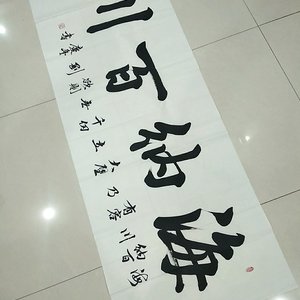 海纳百川
海纳百川有容乃大壁立千仞无欲则刚